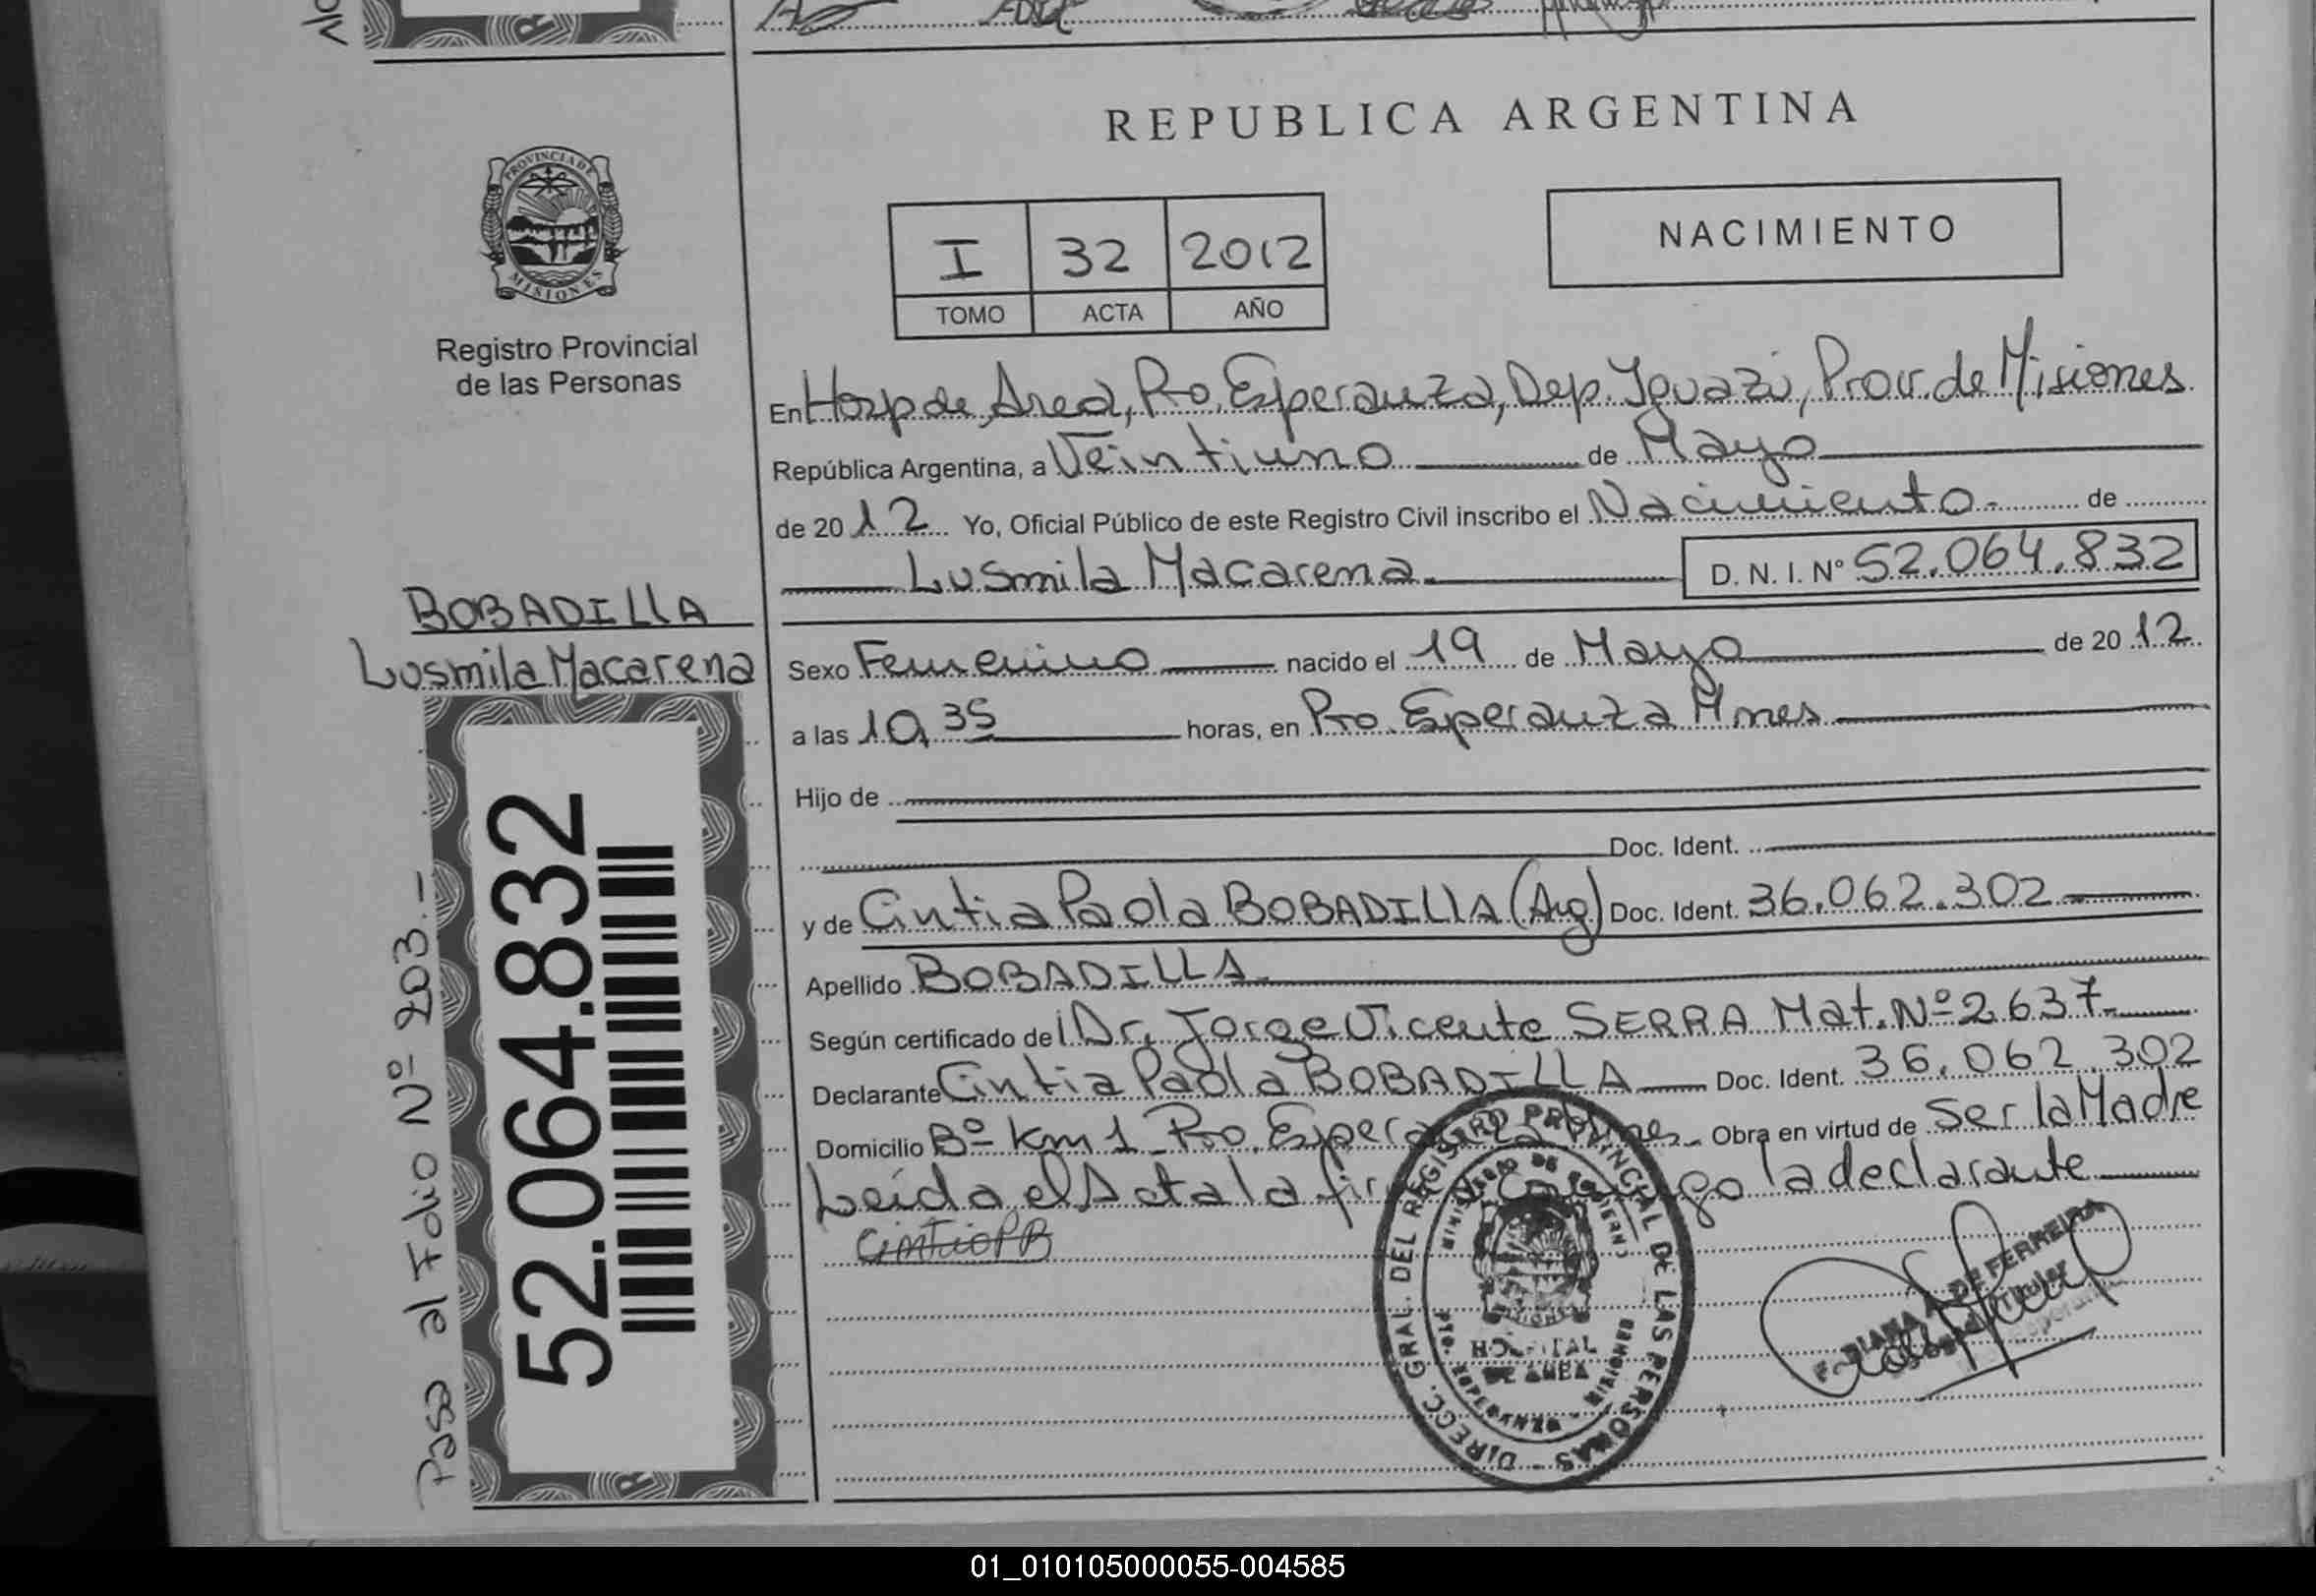 REPUBLICA ARGENTINA
PROVINCIA DE
MISIONES
Registro Provincial
de las Personas
I 32 2012
TOMO ACTA AÑO
NACIMIENTO
En Hosp de Area, Pto. Esperanza, Dep. Iguazú, Prov. de Misiones
República Argentina, a Veintiuno de Mayo
de 2012 Yo, Oficial Público de este Registro Civil inscribo el Nacimiento.- de
Lusmila Macarena. D. N. I. Nº 52.064.832
BOBADILLA
Lusmila Macarena
Sexo Femenino nacido el 19 de Mayo de 2012
a las 10,35 horas, en Pto. Esperanza Mnes
Hijo de
Doc. Ident.
y de Cintia Paola BOBADILLA (Arg) Doc. Ident. 36.062.302
Apellido BOBADILLA
Según certificado de Dr. Jorge Vicente SERRA Mat. Nº 2637.
Declarante Cintia Paola BOBADILLA Doc. Ident. 36.062.302
Domicilio Bº Km 1 Pto. Esperanza Mnes. Obra en virtud de Ser la Madre
Leída el Acta la firma la declarante
CintiaPB
52.064.832
Pasa al Folio Nº 203.-
DIRECC. GRAL. DEL REGISTRO PROVINCIAL DE LAS PERSONAS
MINISTERIO DE GOBIERNO
HOSPITAL
DE AREA
PTO. ESPERANZA - MISIONES
DIANA A. DE FERREIRA
Titular
01_010105000055-004585